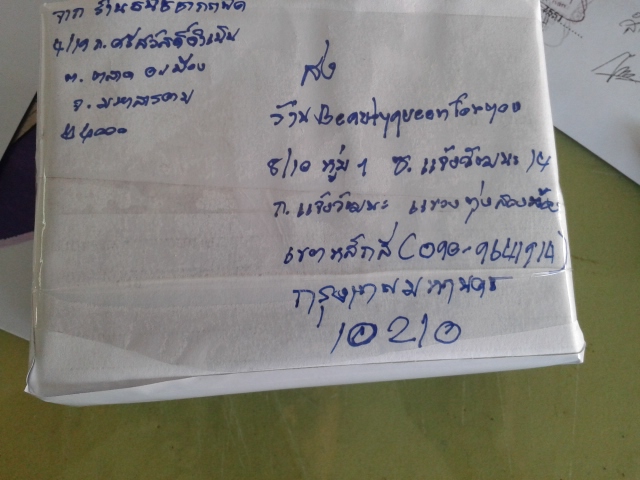 จาก ร้าน
4/19 ถ.ศรีสวัสดิ์ดำเนิน
ต. ตลาด อ.เมือง
จ. มหาสารคาม
44000
ส่ง
ร้าน Beautyqueenforyou
8/10 หมู่ 1 ซ. แจ้งวัฒนะ 14
ถ. แจ้งวัฒนะ แขวงทุ่งสองห้อง
เขตหลักสี่ (090-9641914)
กรุงเทพมหานคร
10210